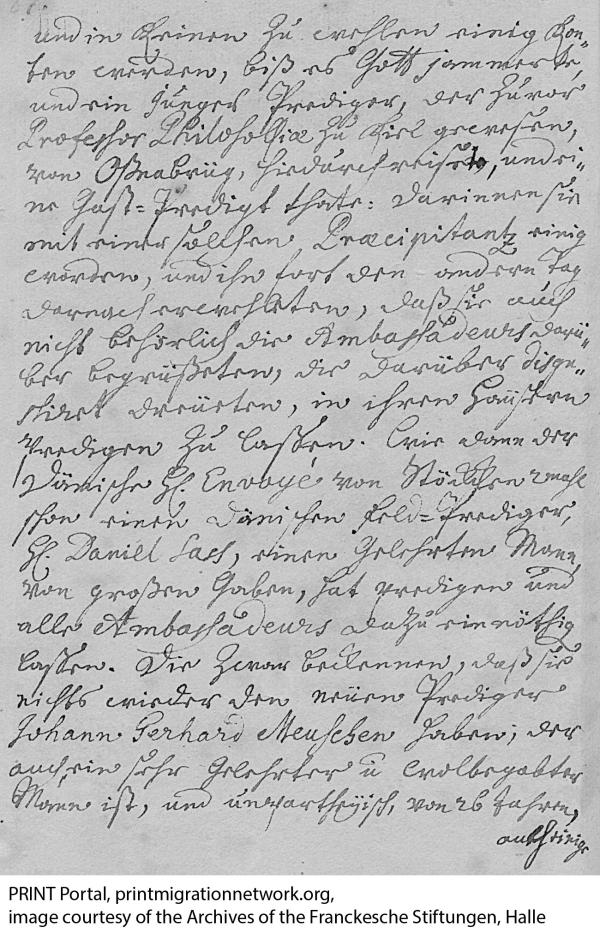 und in Keinen zu wehlen einig Kon-
ten werden, biß es Gott jammerte,
und ein junger Prediger, der zuvor
Professor Philosophiæ zu Kiel gewesen,
von Oßnabrüg, hiedurchreisete, und ei-
ne Gast-Predigt thate: darinnen sie
mit einer solchen Præcipitantz einig
worden, und ihn fort den andern Tag
darnach erwehleten, daß sie auch
nicht behörlich die Ambassadeurs darü-
ber begrüßeten, die darüber disgu-
stiret dreüeten, in ihren Haüsern
Predigen zu lassen. Wie dann der
Dänische H. Envoyé von Stöcken 2mahl
schon einen Dänischen Feld-Prediger,
H. Daniel, einen Gelehrten Mann
von großen Gaben, hat predigen und
alle Ambassadeurs dazu einnöthig
lassen. Die zwar bekennen, daß sie
nichts wieder den neüen Prediger
Johann Gerhard Meuschen haben; der
auch ein sehr Gelehrter u wolbegabter
Mann ist, und unpartheyisch, von 26 Jahren,
PRINT Portal, printmigrationnetwork.org,
image courtesy of the Archives of the Franckesche Stiftungen, Halle